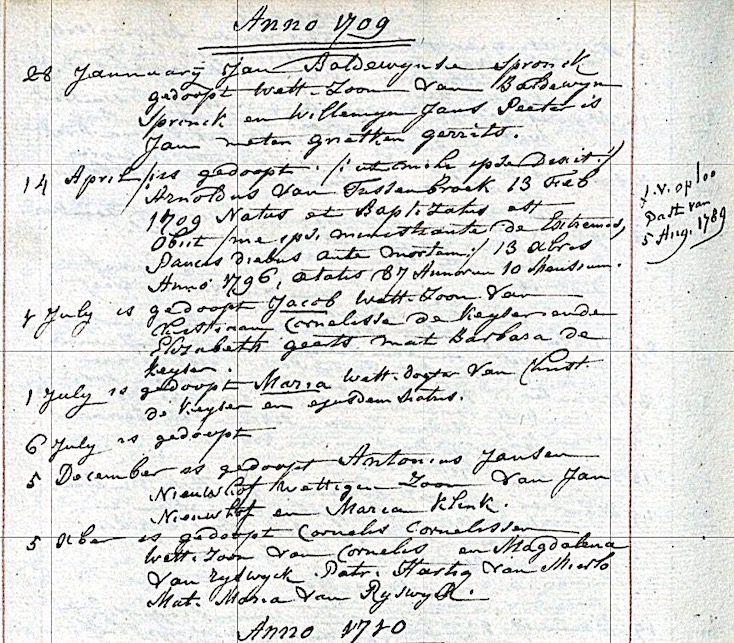 Anno 1709
28 Jannuarÿ Jan Boldewynse Spronck
gedoopt Wett. Zoon Van Boldewyn
Spronck en Willemyn Jans Peeter is
Jan meter Grietken gerrits.
14 April /: is gedoopt. /: ut mihi ipse Dexit :/
Arnoldus Van Tussenbroek 13 Feb
1709 Natus et Baptizatus est
Obiit /: me ipso ministrante de Extremis,
Paucis diebus ante mortem :/ 13 Xbris
Anno 1796, ætatis 87 Annorum 10 Mensium.
July is gedoopt Jacob Wett. Zoon Van
Christiaan Cornelisse de Keyser ende
Elizabeth geerts met Barbara de
Keyser.
1 July is gedoopt Maria Wett. dogter Van Christ
de Keyser en ejusdem status.
6 July is gedoopt
5 December is gedoopt Antonius Jansen
Nieuwhof Wettigen Zoon Van Jan
Nieuwhof en Maria Klink.
5 Xber is gedoopt Cornelis Cornelissen
Wett. Zoon Van Cornelis en Magdalena
Van Ryswyck Patr. Hartig Van Mierlo
Mat. Maria Van Ryswyk.
Anno 1710
Past van
5 Aug. 1789